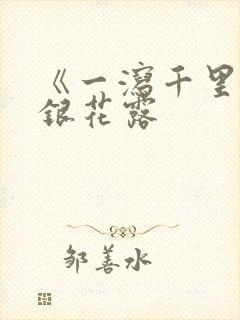 《一瀉千里
銀花露
邹善水